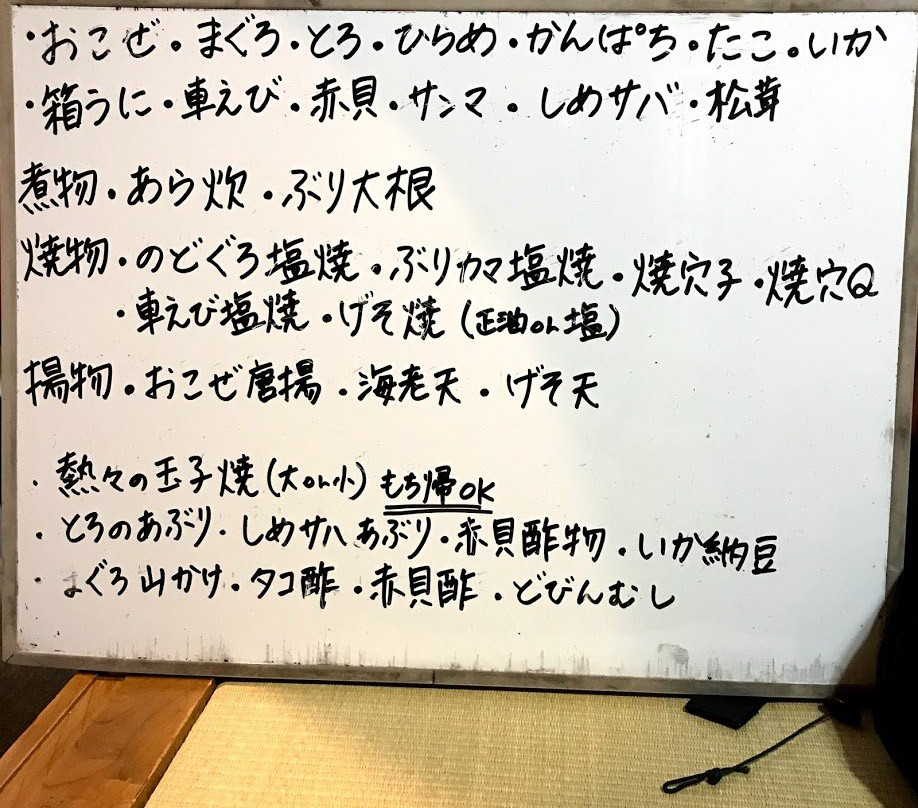 ・おこぜ・まぐろ・とろ・ひらめ・かんぱち・たこ・いか
・箱うに・車えび・赤貝・サンマ・しめサバ・松茸
煮物・あら炊・ぶり大根
焼物・のどぐろ塩焼・ぶりカマ塩焼・焼穴子・焼穴Q
・車えび塩焼・げそ焼(正油or塩)
揚物・おこぜ唐揚・海老天・げそ天
・熱々の玉子焼(大or小)もち帰OK
・とろのあぶり・しめサハあぶり・赤貝酢物・いか納豆
・まぐろ山かけ・タコ酢・赤貝酢・どびんむし